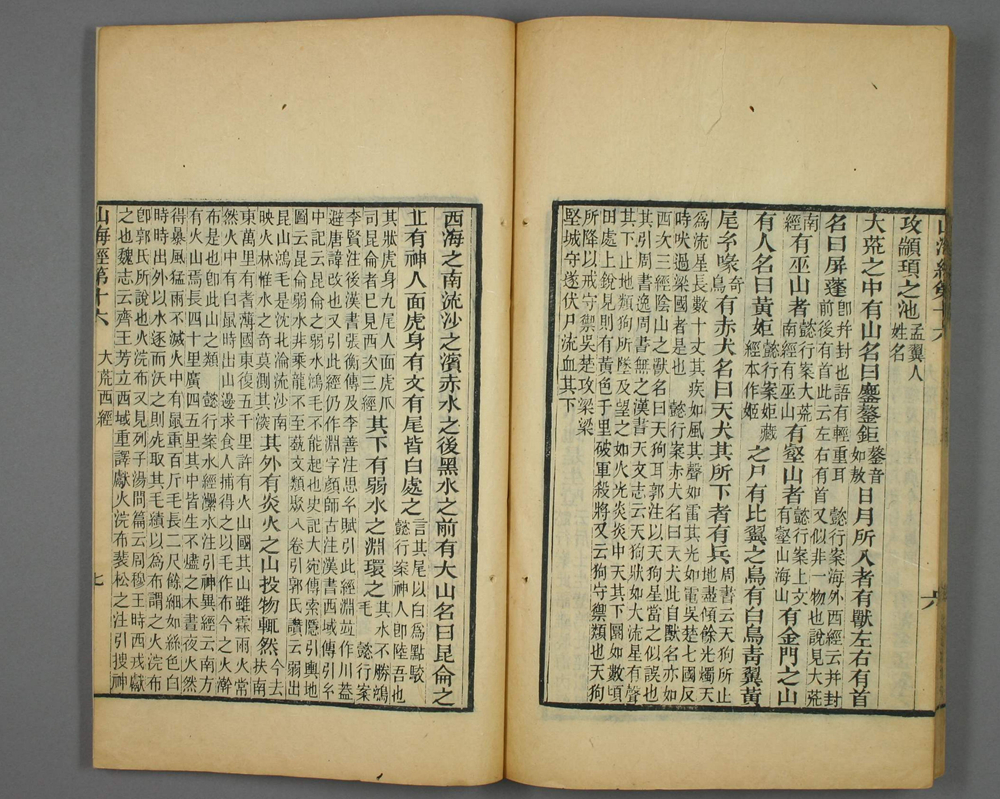 攻顓頊之池孟翼人
姓名
大荒之中有山名曰鏖鏊鉅鏊音
如敖日月所入者有獸左右有首
名曰屏蓬卽幷封也語有輕重耳 懿行案海外西經云幷封
前後有首此云左右有首又似非一物也說見大荒
南
經有巫山者懿行案大荒
南經有巫山有壑山者懿行案上文
有壑山海山有金門之山
有人名曰黃姖懿行案姖藏
經本作姬之尸有比翼之鳥有白鳥靑翼黃
尾玄喙奇
鳥有赤犬名曰天犬其所下者有兵周書云天狗所止
地盡傾餘光燭天
為流星長數十丈其疾如風其聲如雷其光如電吳楚七國反
時吠過梁國者是也 懿行案赤犬名曰天犬此自獸名亦如
西次三經陰山之獸名曰天狗耳郭注以天狗星當之似誤也
其引周書逸周書無之漢書天文志云天狗狀如大流星有聲
其下止地類狗所墜及望之如火光炎炎中天其下圜如數頃
田處上銳見則有黃色千里破軍殺將又云狗守禦類也天狗
所降以戒守禦吳楚攻梁梁
堅城守遂伏尸流血其下
六
西海之南流沙之濱赤水之後黑水之前有大山名曰昆侖之
丘有神人面虎身有文有尾皆白處之言其尾以白為點駮
懿行案神人卽陸吾也
其狀虎身九尾人面虎爪
司昆侖者巳見西次三經其下有弱水之淵環之其水不勝鴻
毛 懿行案
李賢注後漢書張衡傳及李善注思玄賦引此經淵竝作川葢
避唐諱改也又引此經仍作淵字顏師古注漢書西域傳引玄
中記云昆侖之弱水鴻毛不能起也史記大宛傳索隱引輿地
圖云昆侖弱水非乘龍不至蓺文類聚八卷引郭氏讚云弱出
昆山鴻毛是沈北淪流沙南
映火林惟水之奇莫測其淡其外有炎火之山投物輒然今去
扶南
東萬里有耆薄國東復五千里許有火山國其山雖霖雨火常
然火中有白鼠時出山邊求食人捕得之以毛作布今之火澣
布是也卽此山之類 懿行案水經㶟水注引神異經云南方
有火山焉長四十里廣四五里其中皆生不燼之木晝夜火然
得暴風猛雨不滅火中有鼠重百斤毛長二尺餘細如絲色白
時時出外以水逐而沃之則死取其毛績以為布謂之火浣布
卽郭氏所說也火浣布又見列子湯問篇云周穆王時西戎獻
之也魏志云齊王芳立西域重譯獻火浣布裴松之注引搜神
山海經第十六 大荒西經 七